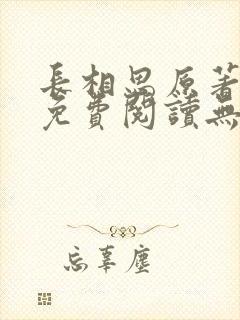 長相思原著
免費閱讀無
忘辜塵